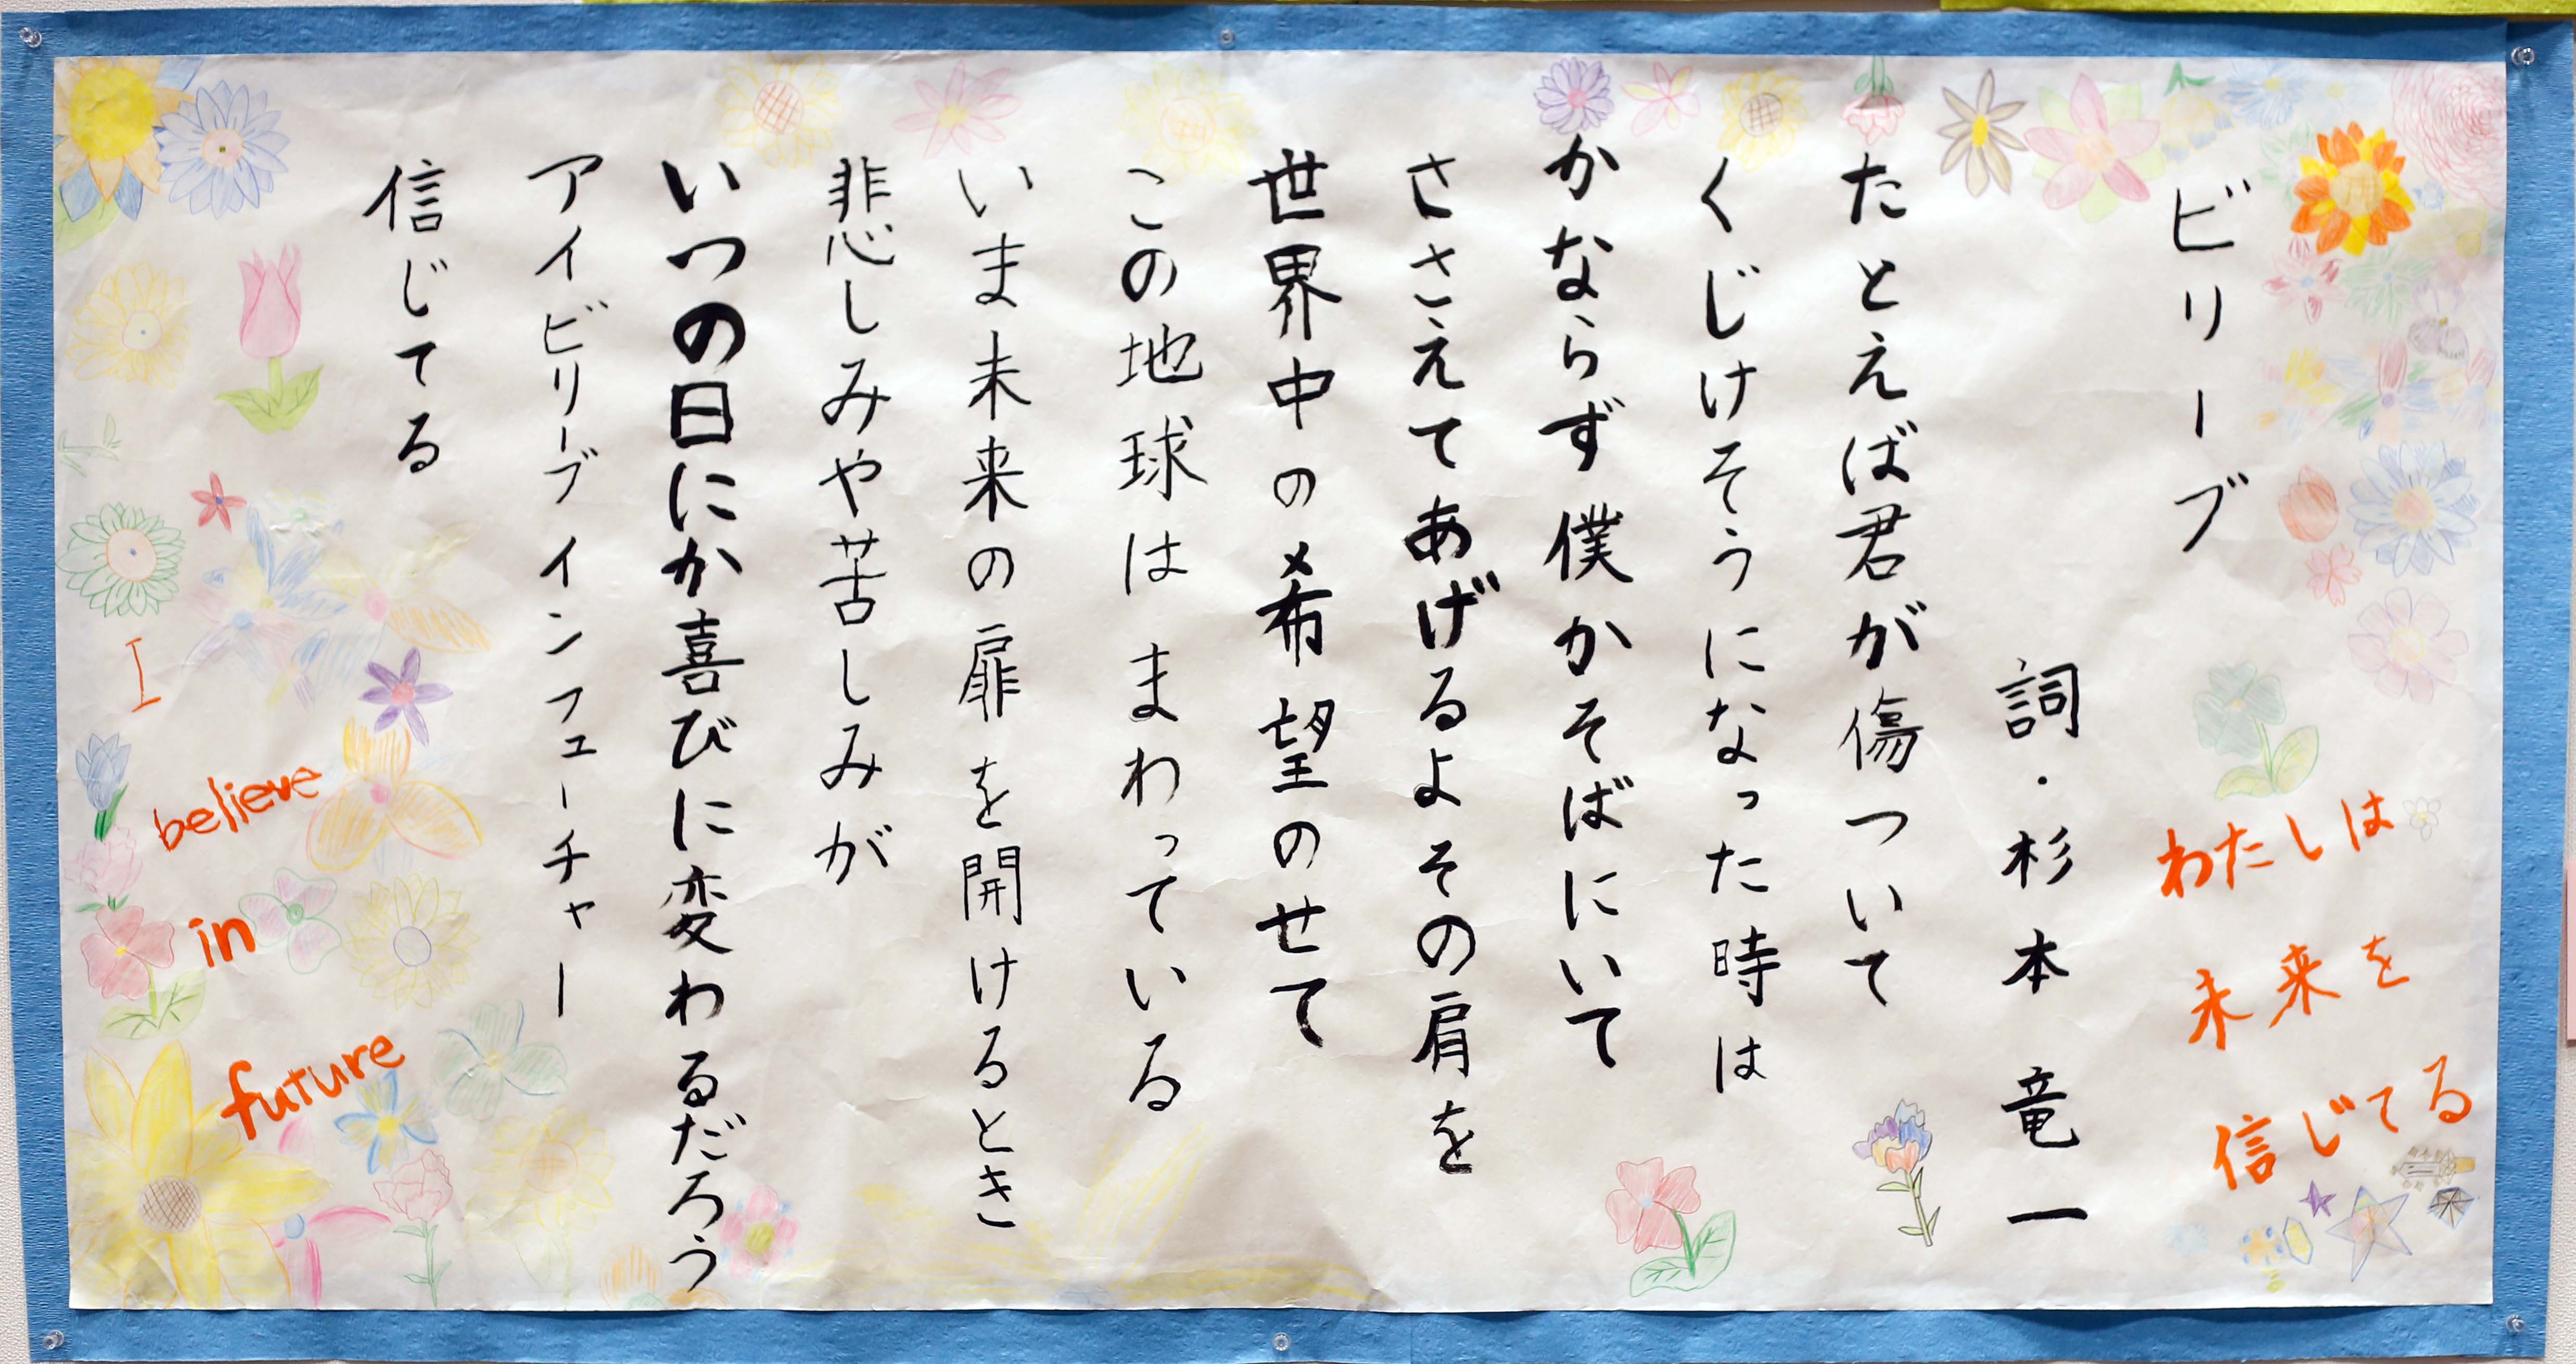 ビリーブ
わたしは
未来を
信じてる
詞・杉本竜一
たとえば君が傷ついて
くじけそうになった時は
かならず僕がそばにいて
ささえてあげるよその肩を
世界中の希望のせて
この地球はまわっている
いま未来の扉を開けるとき
悲しみや苦しみが
いつの日にか喜びに変わるだろう
アイビリーブインフューチャー
信じてる
I
believe
in
future